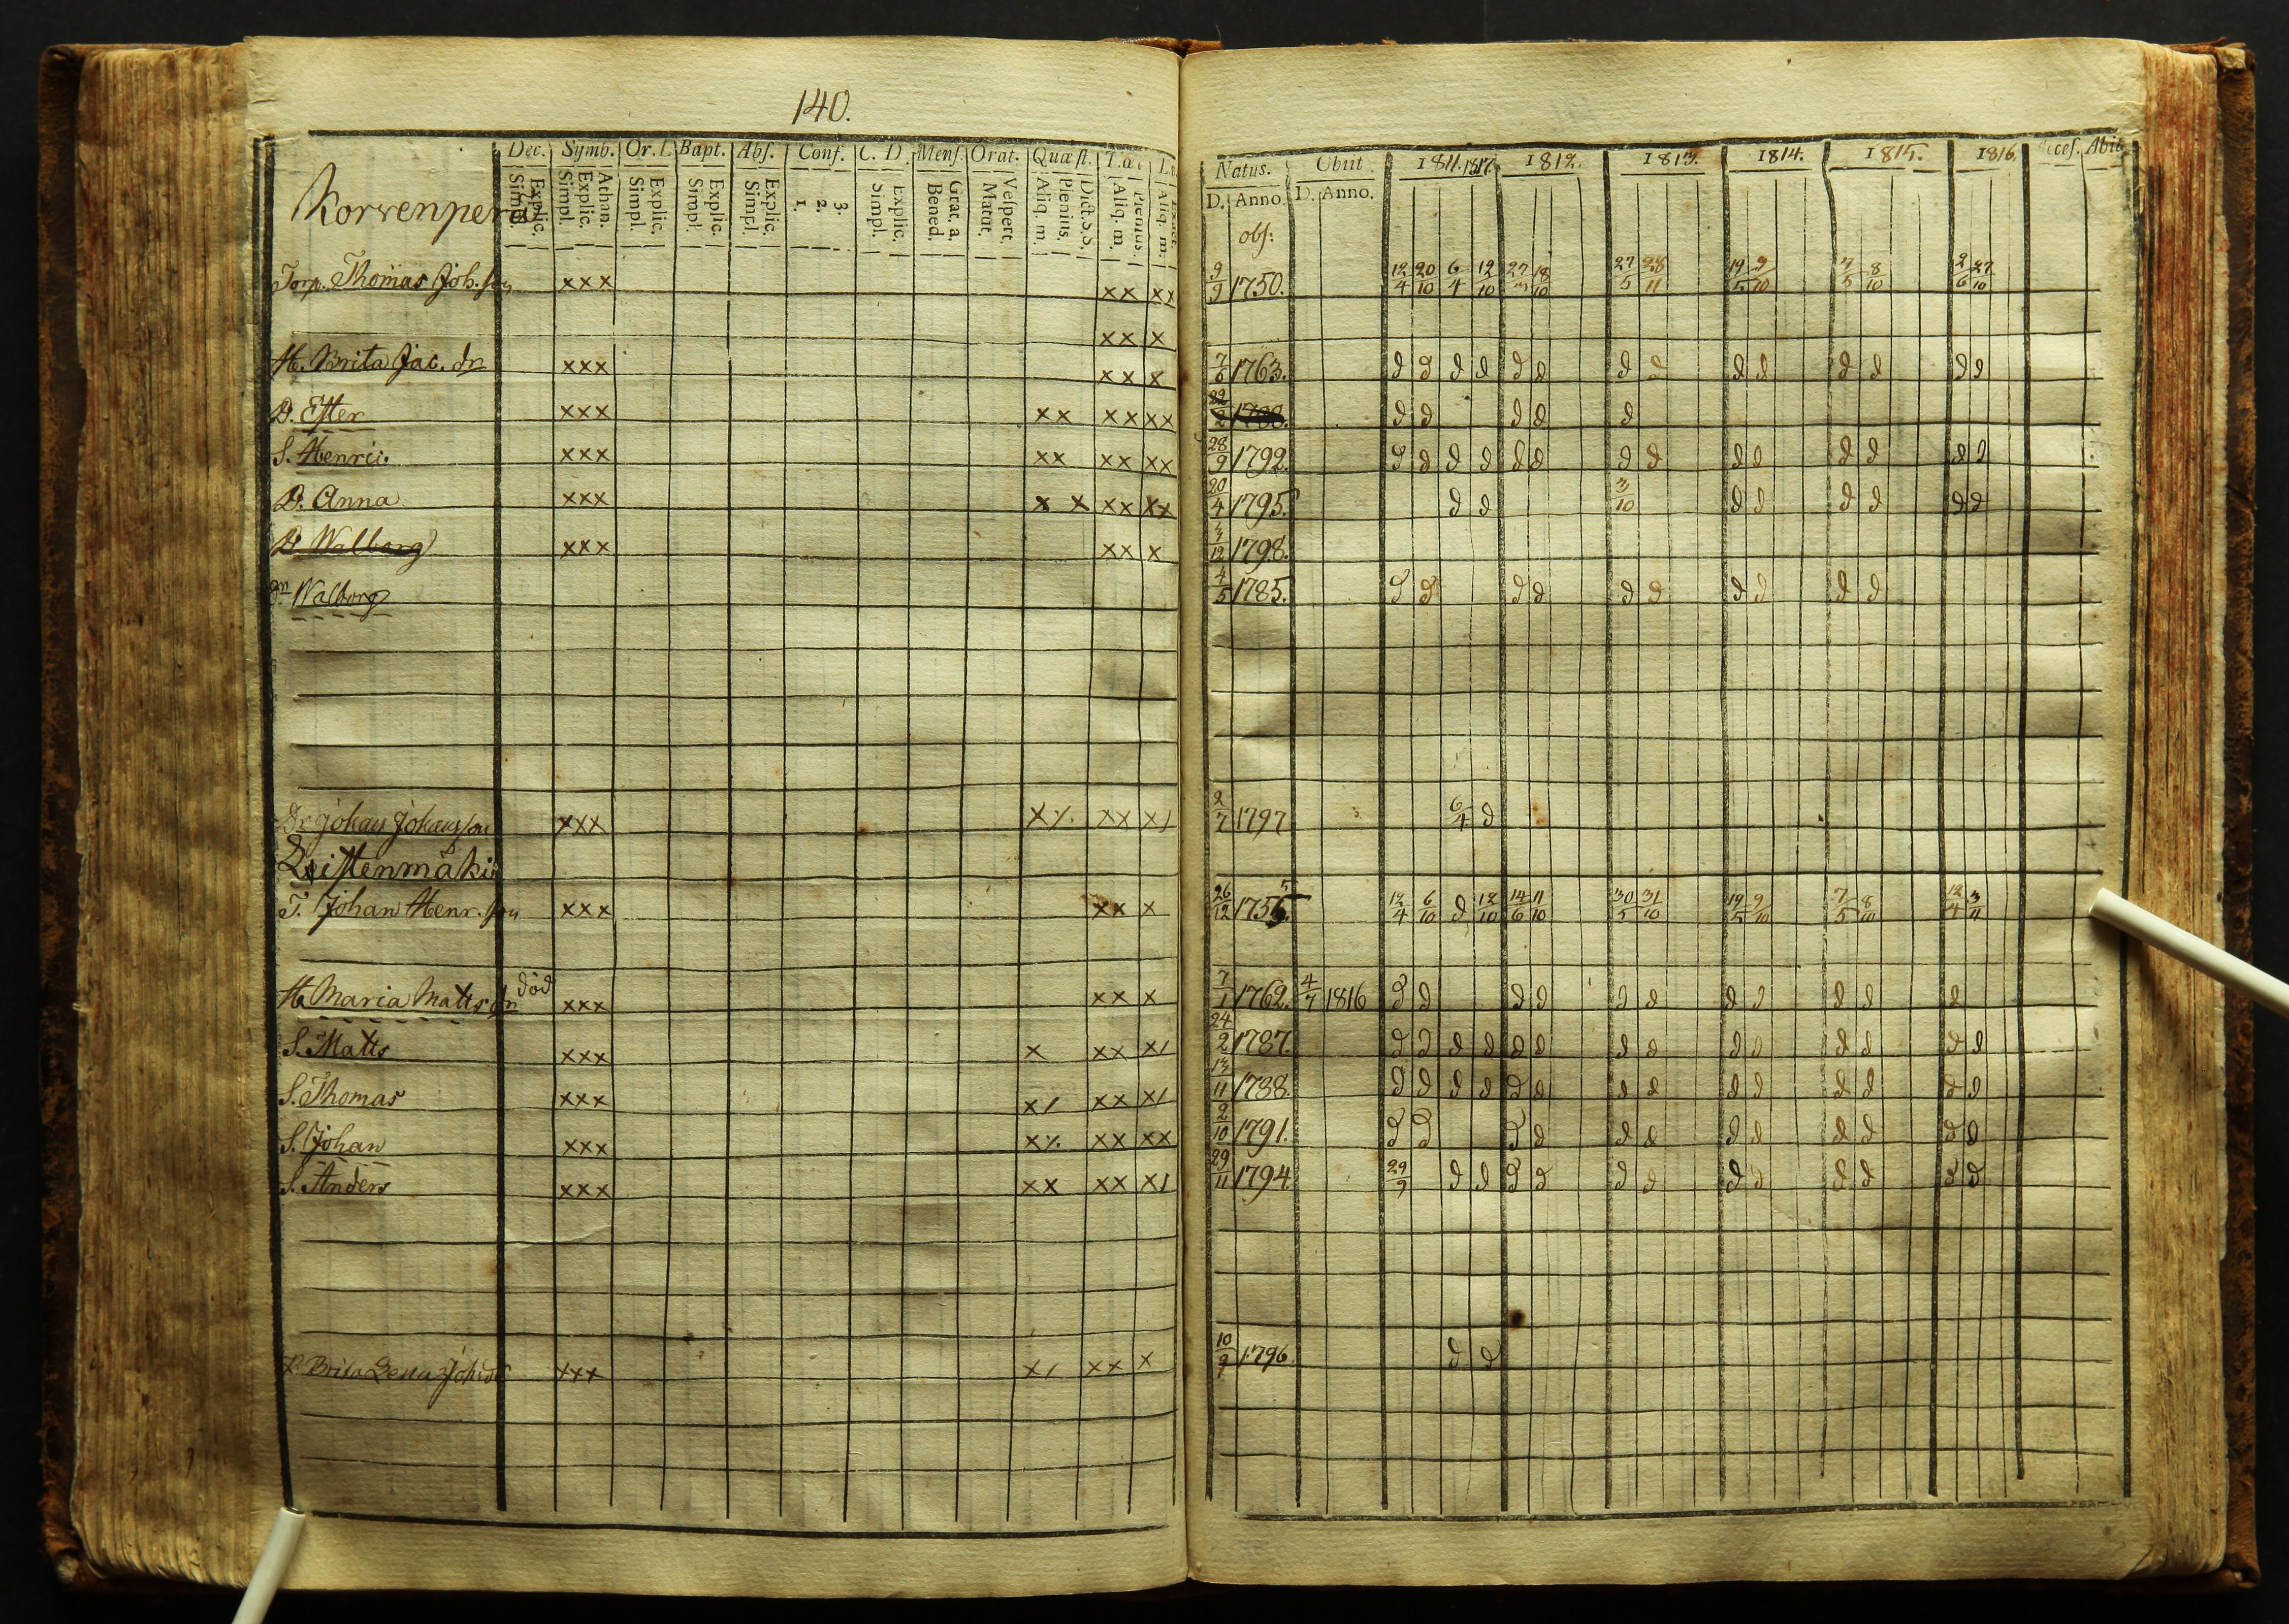 140.
Dec. Symb. Or. D. Bapt. Abs. Conf. C. D. Mens. Orat. Quæst.
Explic. Simpl. Athan. Explic. Simpl. Explic. Simpl. Explic. Simpl. Explic. Simpl. 3. 2. 1. Explic. Simpl. Grat. a. Bened. Vespert. Matut. Dict. S.S. Plenius. Aliq. m. Plenius. Aliq. m. Aliq. m.
Natus. Obiit 1811. 1817. 1812. 1813. 1814. 1815. 1816. Abit
D. Anno. D. Anno.
Korvenperä
obs:
Torp. Thomas Joh. son xxx xx xx 9/9 1750. 12/4 20/10 6/4 12/10 27/3 18/10 27/5 28/11 19/5 9/10 7/5 8/10 2/6 27/10
xx x
H. Brita Jac. dr xxx xx x 7/6 1763. d d d d d d d d d d d d d d
D. Ester xxx xx xx xx 22/2 1788. d d d d d
S. Henric. xxx xx xx xx 28/9 1792. d d d d d d d d d d d d d d
D. Anna xxx x x xx xx 20/4 1795. d d 3/10 d d d d d d
D. Walborg xxx xx x 3/12 1798.
Walborg 4/5 1785. d d d d d d d d d d
Dr. Johan Johansson xxx x/. xx x/ 2/7 1797 6/4 d
Leistenmäki
T. Johan Henr. son xxx xx x 26/12 1755. 12/4 6/10 d 12/10 14/6 11/10 30/5 31/10 19/5 9/10 7/5 8/10 12/4 3/11
H. Maria Matts dr död xxx xx x 7/1 1762. 4/7 1816 d d d d d d d d d d d
S. Matts xxx x xx x/ 24/2 1787. d d d d d d d d d d d d d d
S. Thomas xxx x/ xx x/ 13/11 1788. d d d d d d d d d d d d d d
S. Johan xxx x/. xx xx 2/10 1791. d d d d d d d d d d d d
S. Anders xxx xx xx x/ 29/11 1794 29/9 d d d d d d d d d d d d
Brita Lena Joh. dr xxx x/ xx x 10/9 1796. d d